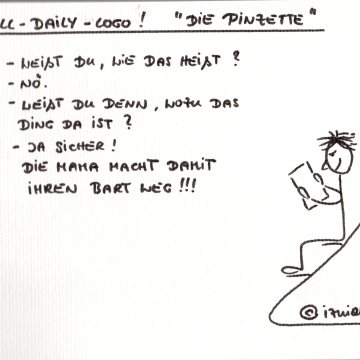 LL-DAILY-LOGO! "DIE PINZETTE"
- WEIßT DU, WIE DAS HEIßT?
- NÖ.
- WEIßT DU DENN, WOZU DAS
DING DA IST?
- JA SICHER!
DIE MAMA MACHT DAMIT
IHREN BART WEG!!!